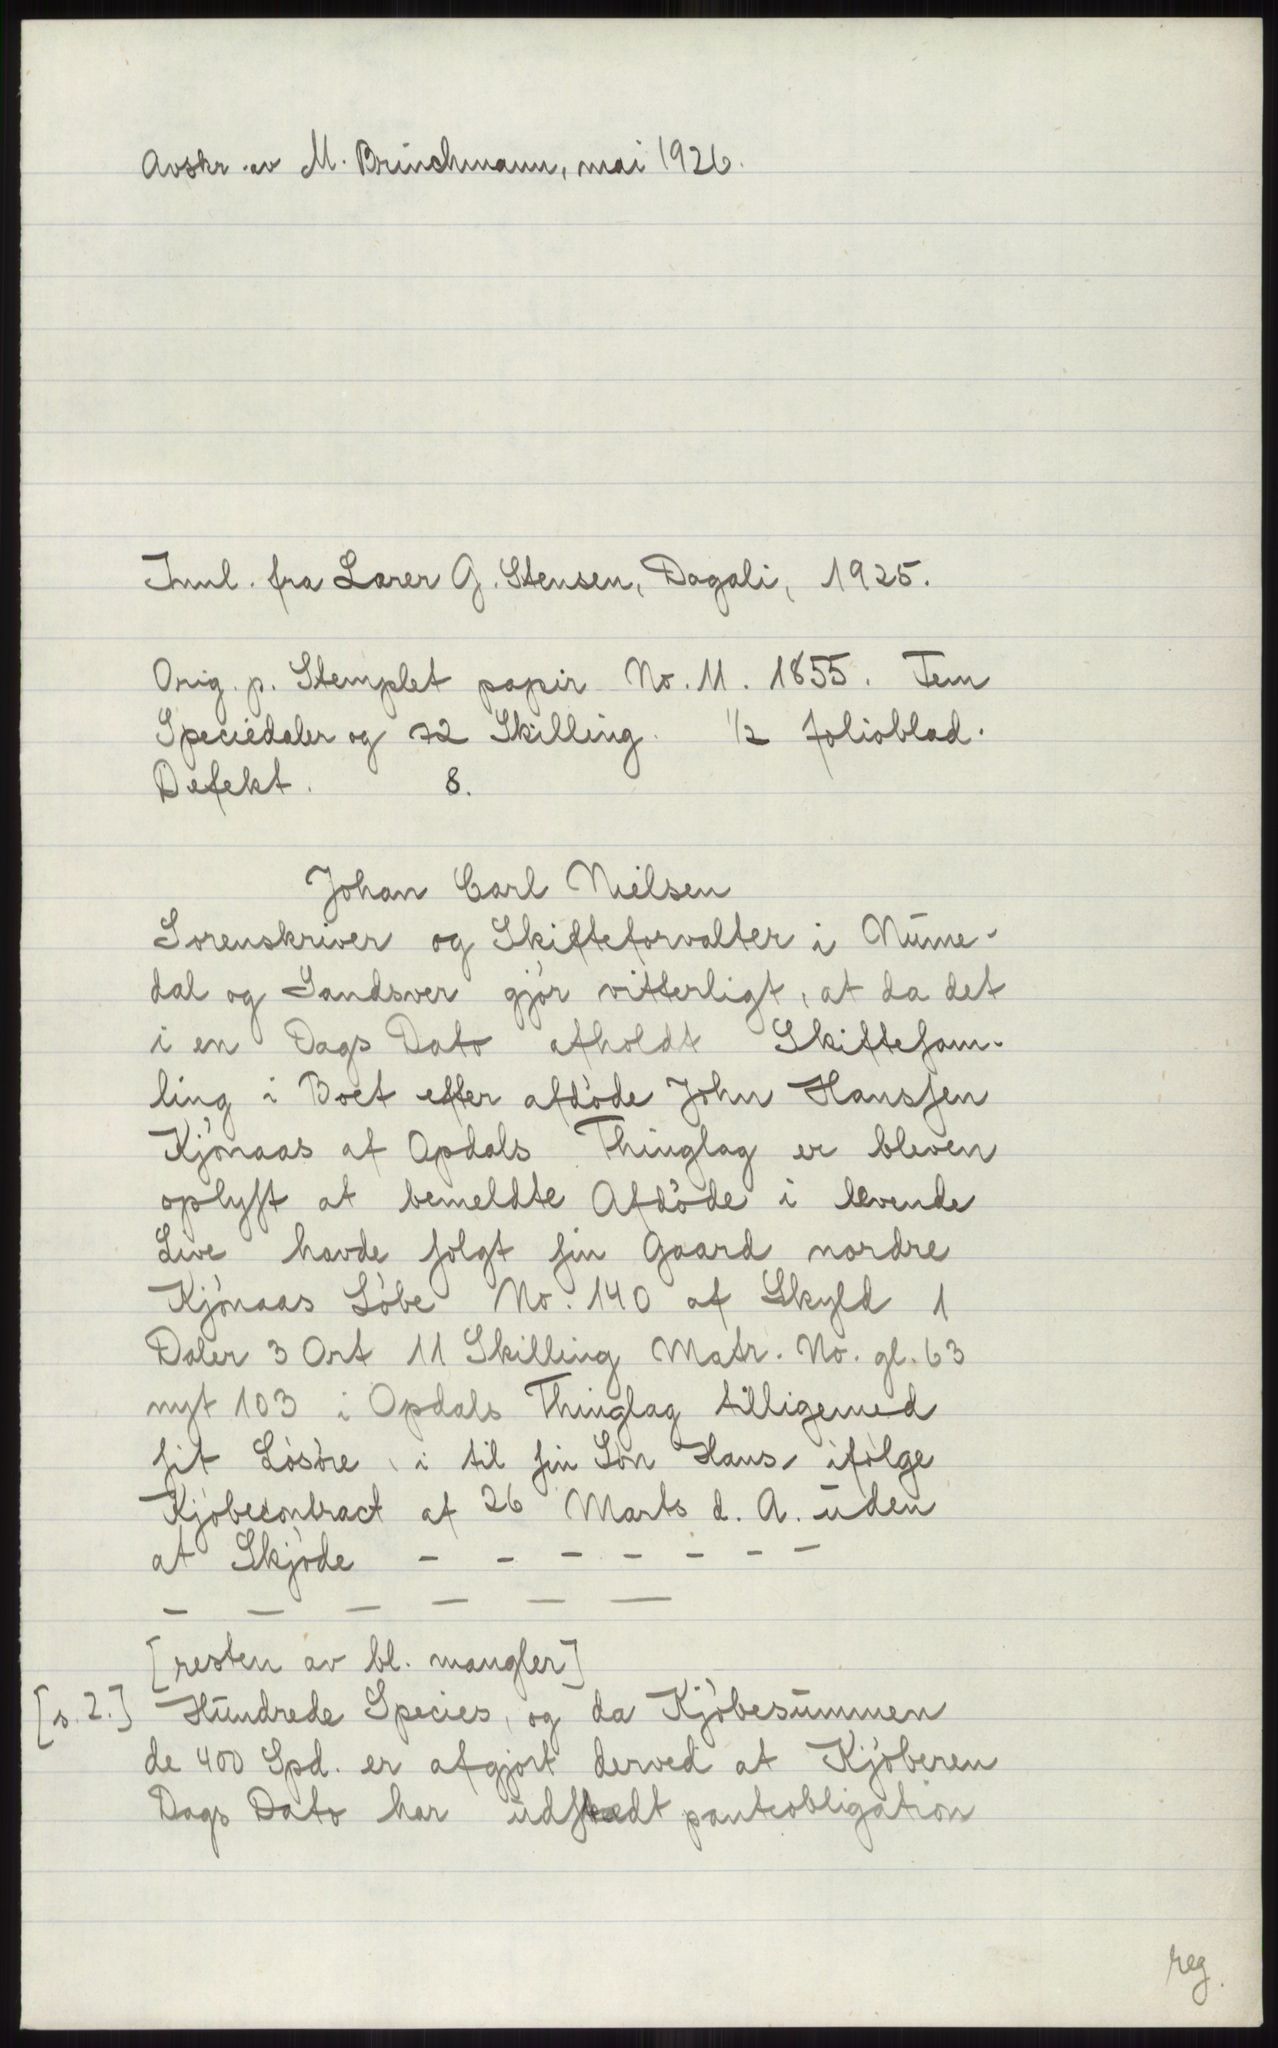 Avskr. av M. Brinchmann, mai 1926.
Innl. fra Lærer G. Stensen, Dagali, 1925.
Orig. p. Stemplet papir No. 11. 1855. Fem
Speciedaler og 72 Skilling. 1/2 folioblad.
Defekt. 8.
Johan Carl Nielsen
Sorenskriver og Skifteforvalter i Nume-
dal og Sandsver gjör vitterligt, at da det
i en Dags Dato afholdt Skiftesam-
ling i Boet efter afdöde John Hanssen
Kjönaas af Opdals Thinglag er bleven
oplyst at bemeldte Afdöde i levende
Live havde solgt sin Gaard nordre
Kjönaas Löbe No. 140 af Skyld 1
Daler 3 Ort 11 Skilling Matr. No. gl. 63
nyt 103 i Opdals Thinglag tilligemed
sit Lösöre, i til sin Sön Hans, ifölge
Kjöbecontract af 26 Marts d. A. uden
at Skjöde - - - - - - -
- - - - - -
[resten av bl. mangler]
[s. 2.] Hundrede Species, og da Kjöbesummen
de 400 Spd. er afgjort derved at Kjöberen
Dags Dato har udstædt panteobligation
reg.